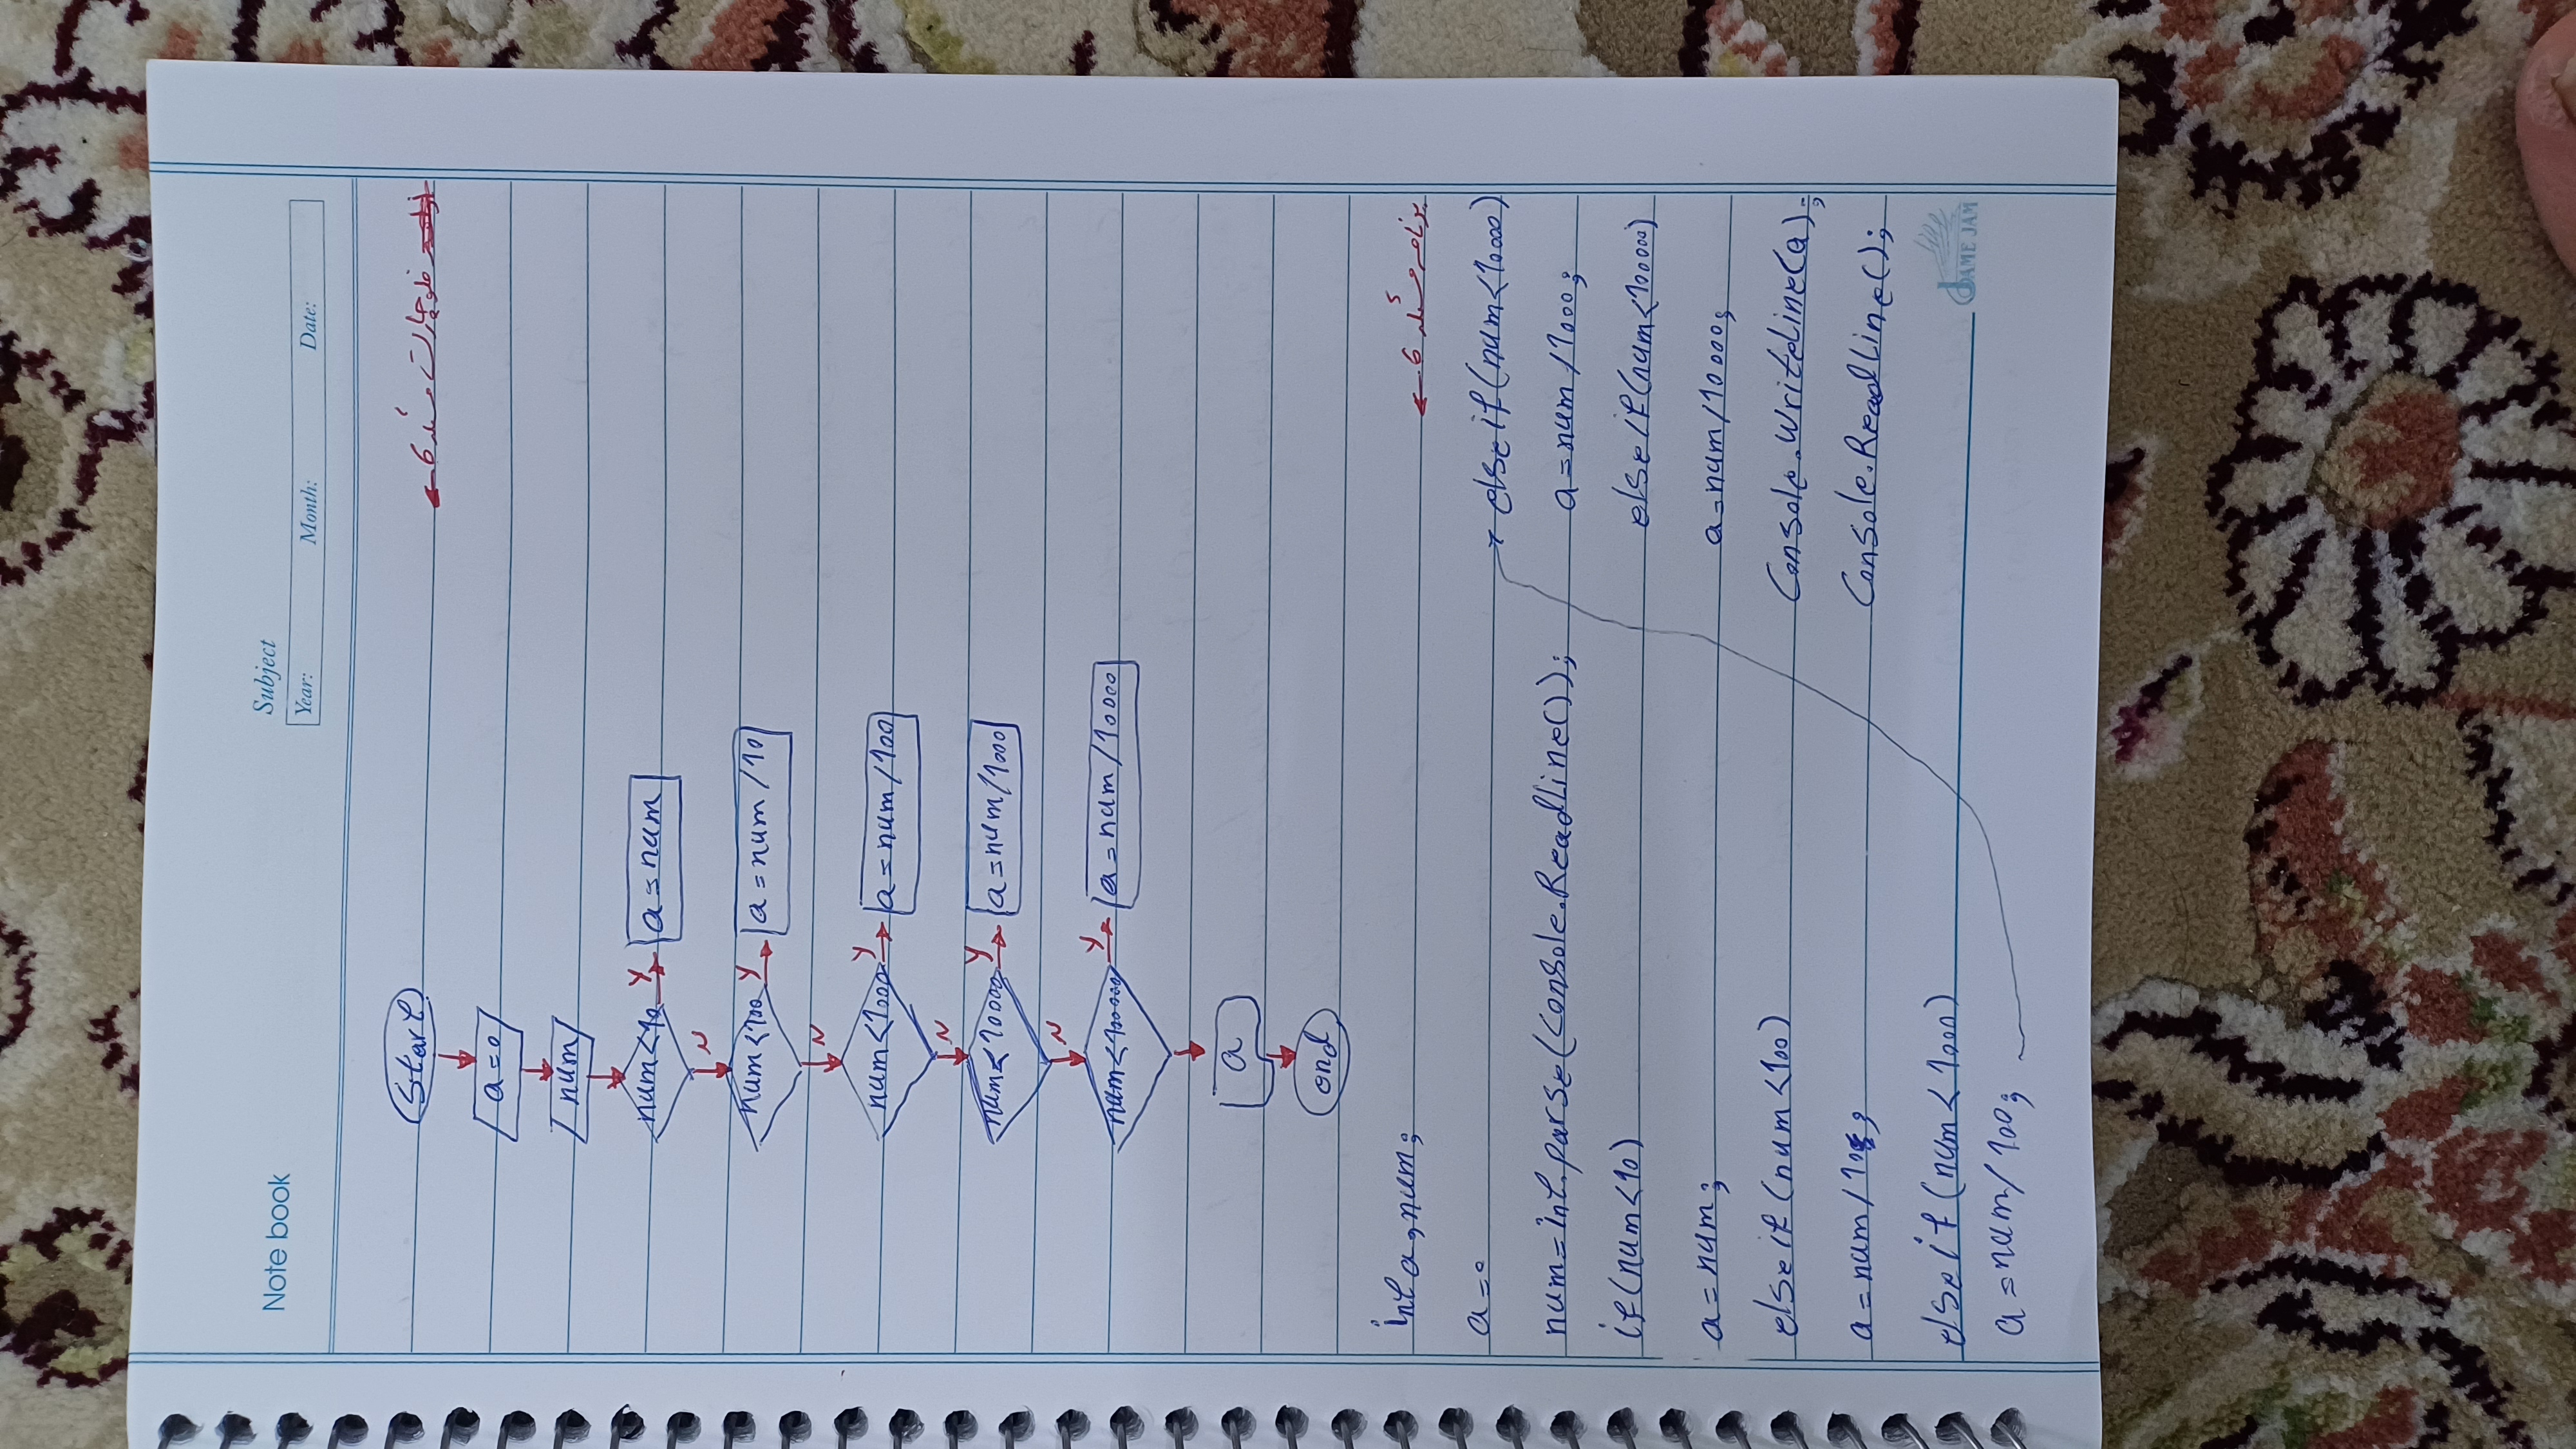 Note book
Subject
Year: Month: Date:
فلوچارت مسئله 6
Start
a=0
num
num<10
Y
a=num
N
num<100
Y
a=num/10
N
num<1000
Y
a=num/100
N
num<10000
Y
a=num/1000
N
num<100000
Y
a=num/10000
a
end
برنامه مسئله 6
int a,num;
a=0
num=int.parse(Console.ReadLine());
if(num<10)
a=num;
else if(num<100)
a=num/10;
else if(num<1000)
a=num/100;
else if(num<10000)
a=num/1000;
else if(num<100000)
a=num/10000;
Console.WriteLine(a);
Console.ReadLine();
JAME JAM